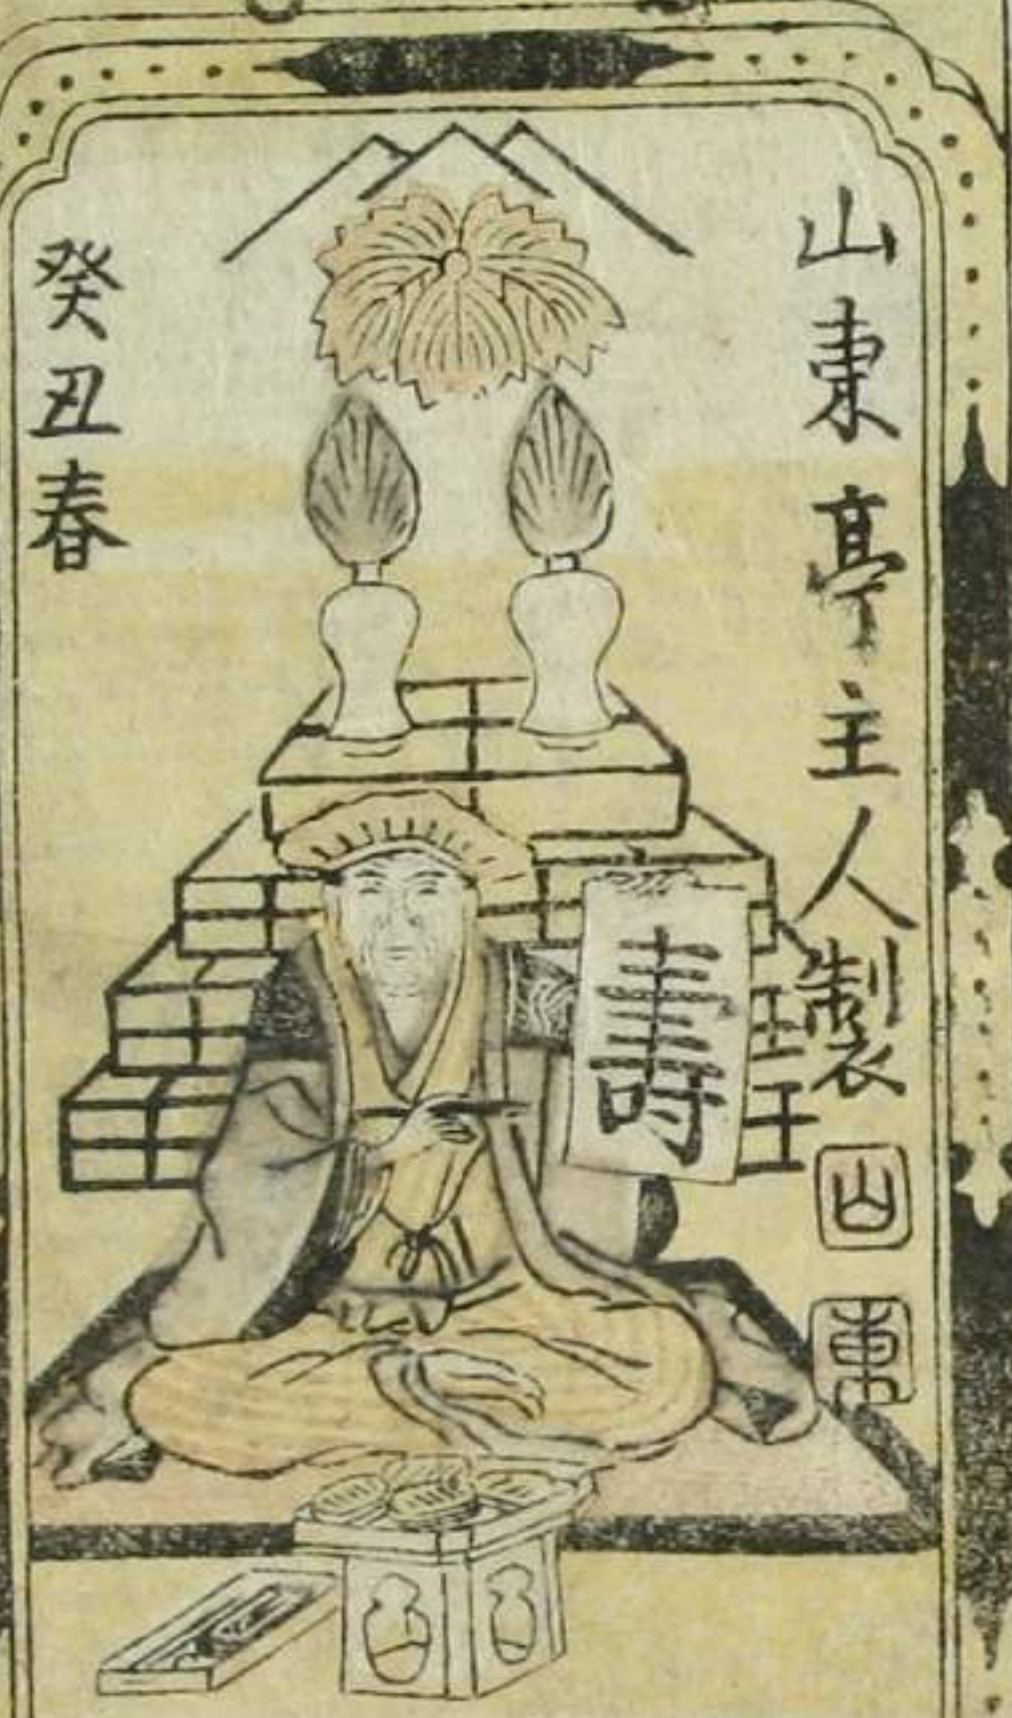 山東亭主人製
山
東
壽
癸丑春